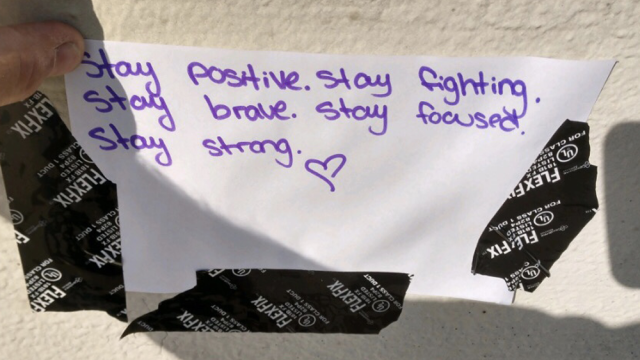 Stay positive. Stay fighting.
Stay brave. Stay focused.
Stay strong.
FLEXFIX
FLEXFIX
FLEXFIX
FOR CLASS 1 DUCT
FLEXFIX
FOR CLASS 1 DUCT
FLEXFIX
FLEXFIX
FLEXFIX